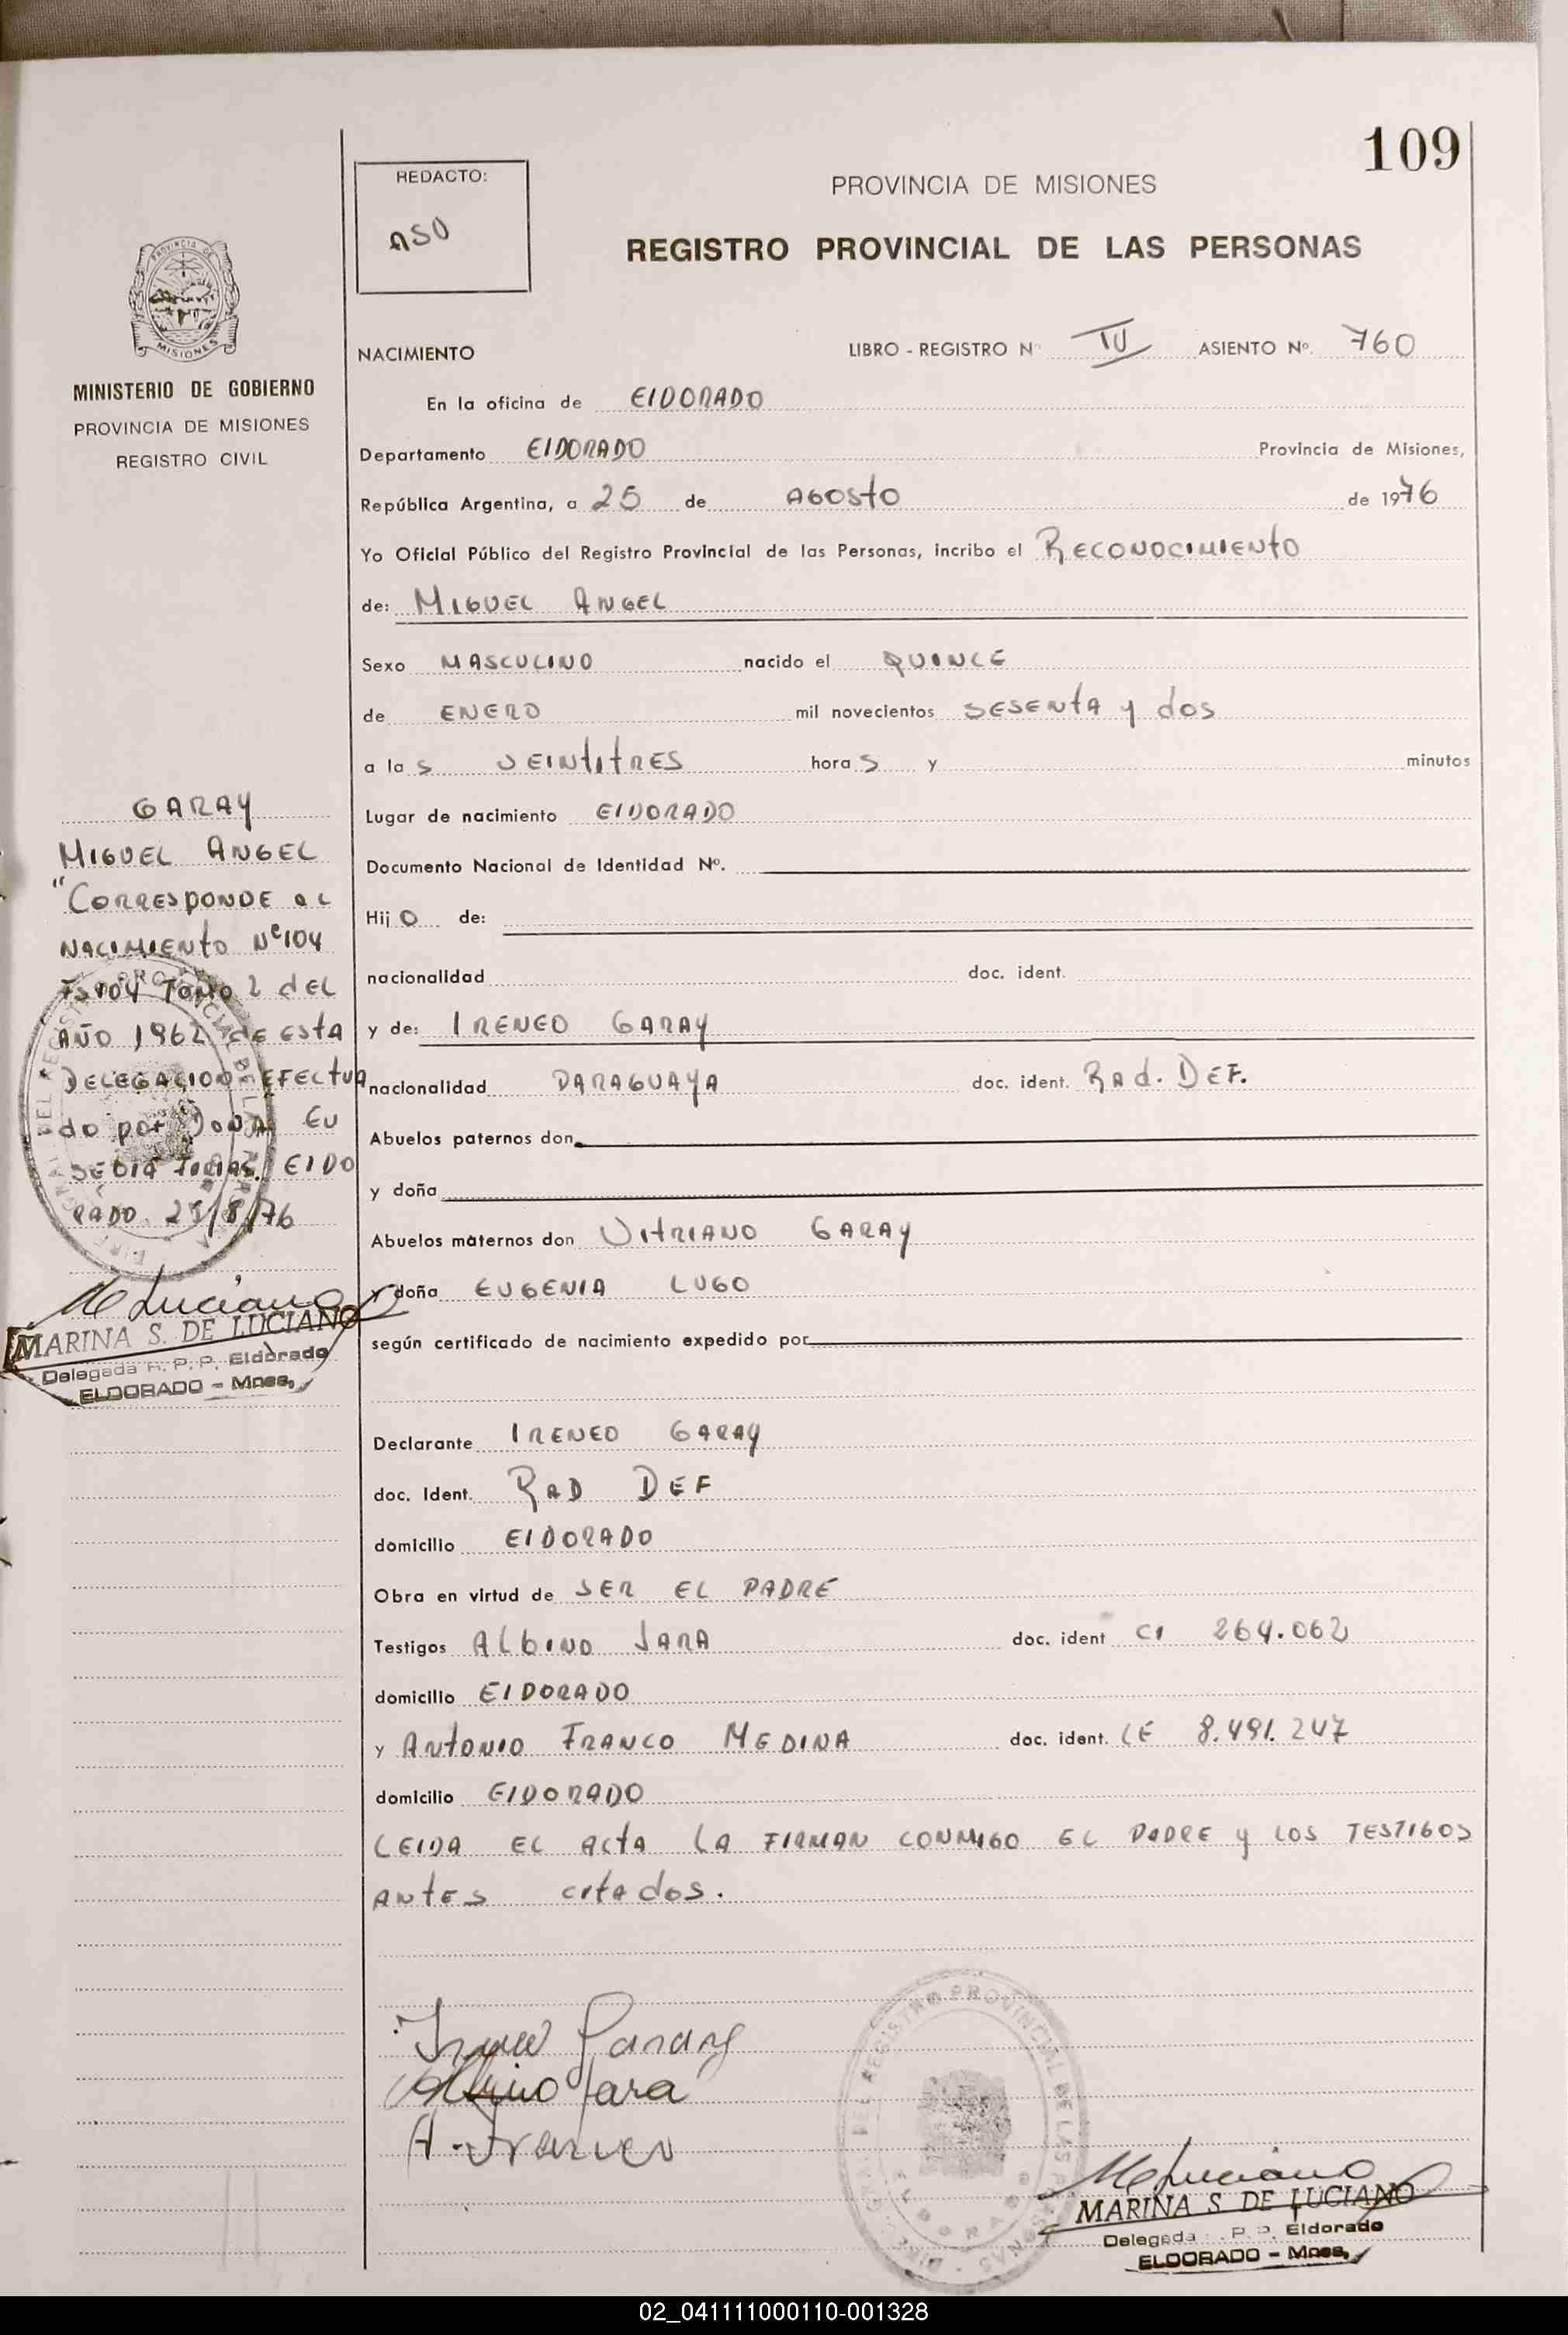 109
REDACTO:
ASO
PROVINCIA DE MISIONES
REGISTRO PROVINCIAL DE LAS PERSONAS
MISIONES
MINISTERIO DE GOBIERNO
PROVINCIA DE MISIONES
REGISTRO CIVIL
NACIMIENTO LIBRO - REGISTRO Nº IV ASIENTO Nº. 760
En la oficina de ElDORADO
Departamento ElDORADO Provincia de Misiones,
República Argentina, a 25 de AGOSTO de 1976
Yo Oficial Público del Registro Provincial de las Personas, incribo el RECONOCIMIENTO
de: MIGUEL ANGEL
Sexo MASCULINO nacido el QUINCE
de ENERO mil novecientos SESENTA y dos
a las VEINTITRES horas y minutos
Lugar de nacimiento ElDORADO
Documento Nacional de Identidad Nº.
Hijo de:
nacionalidad doc. ident.
y de: IRENEO GARAY
nacionalidad PARAGUAYA doc. ident. Rad. DEF.
Abuelos paternos don
y doña
Abuelos maternos don VITRIANO GARAY
y doña EUGENIA LUGO
según certificado de nacimiento expedido por
Declarante IRENEO GARAY
doc. Ident. RAD DEF
domicilio ElDORADO
Obra en virtud de SER EL PADRE
Testigos ALBINO JARA doc. ident CI 264.062
domicilio ElDORADO
y ANTONIO FRANCO MEDINA doc. ident. LE 8.491.247
domicilio ElDORADO
LEIDA EL ACTA LA FIRMAN CONMIGO EL PADRE y LOS TESTIGOS
ANTES citados.
GARAY
MIGUEL ANGEL
"CORRESPONDE AL
NACIMIENTO Nº104
Fs 104 TOMO 2 dEL
AÑO 1962 DE ESTA
DELEGACION EFECTUA
do por DOÑA EU
SEBIA ElDO
RADO. 25/8/76
M Luciano
MARINA S. DE LUCIANO
Delegada R. P. P. Eldorado
ELDORADO - Mnes.
Ireneo Garay
Albino Jara
A. Franco
M Luciano
MARINA S. DE LUCIANO
Delegada P. P. Eldorado
ELDORADO - Mnes.
02_041111000110-001328